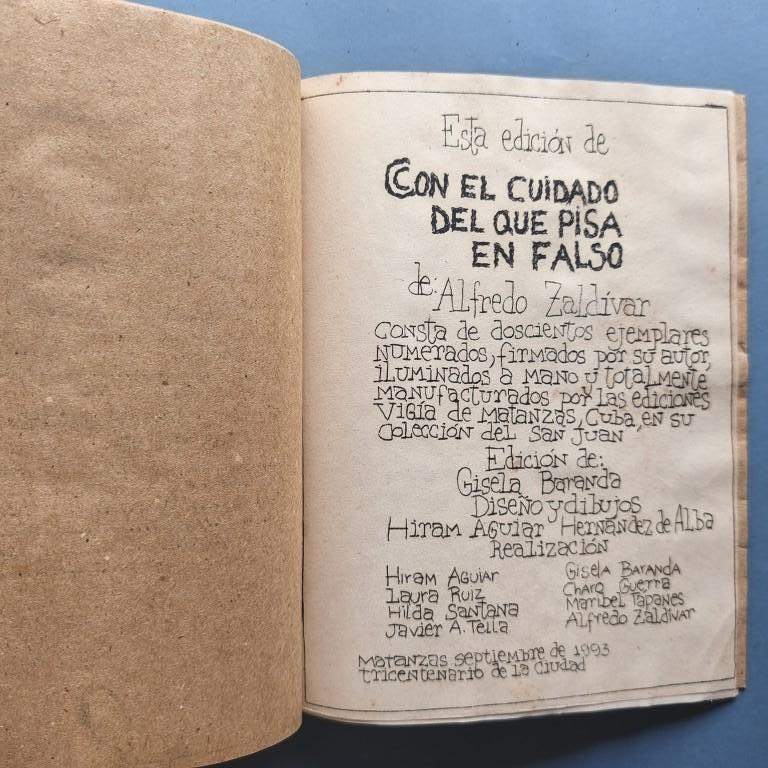 Esta edición de
CON EL CUIDADO
DEL QUE PISA
EN FALSO
de: Alfredo Zaldívar
consta de doscientos ejemplares
numerados, firmados por su autor,
iluminados a mano y totalmente
manufacturados por las ediciones
Vigía de Matanzas, Cuba, en su
Colección del San Juan
Edición de:
Gisela Baranda
Diseño y dibujos
Hiram Aguiar Hernández de Alba
Realización
Hiram Aguiar
Laura Ruiz
Hilda Santana
Javier A. Tella
Gisela Baranda
Charo Guerra
Maribel Tápanes
Alfredo Zaldívar
Matanzas septiembre de 1993
tricentenario de la ciudad